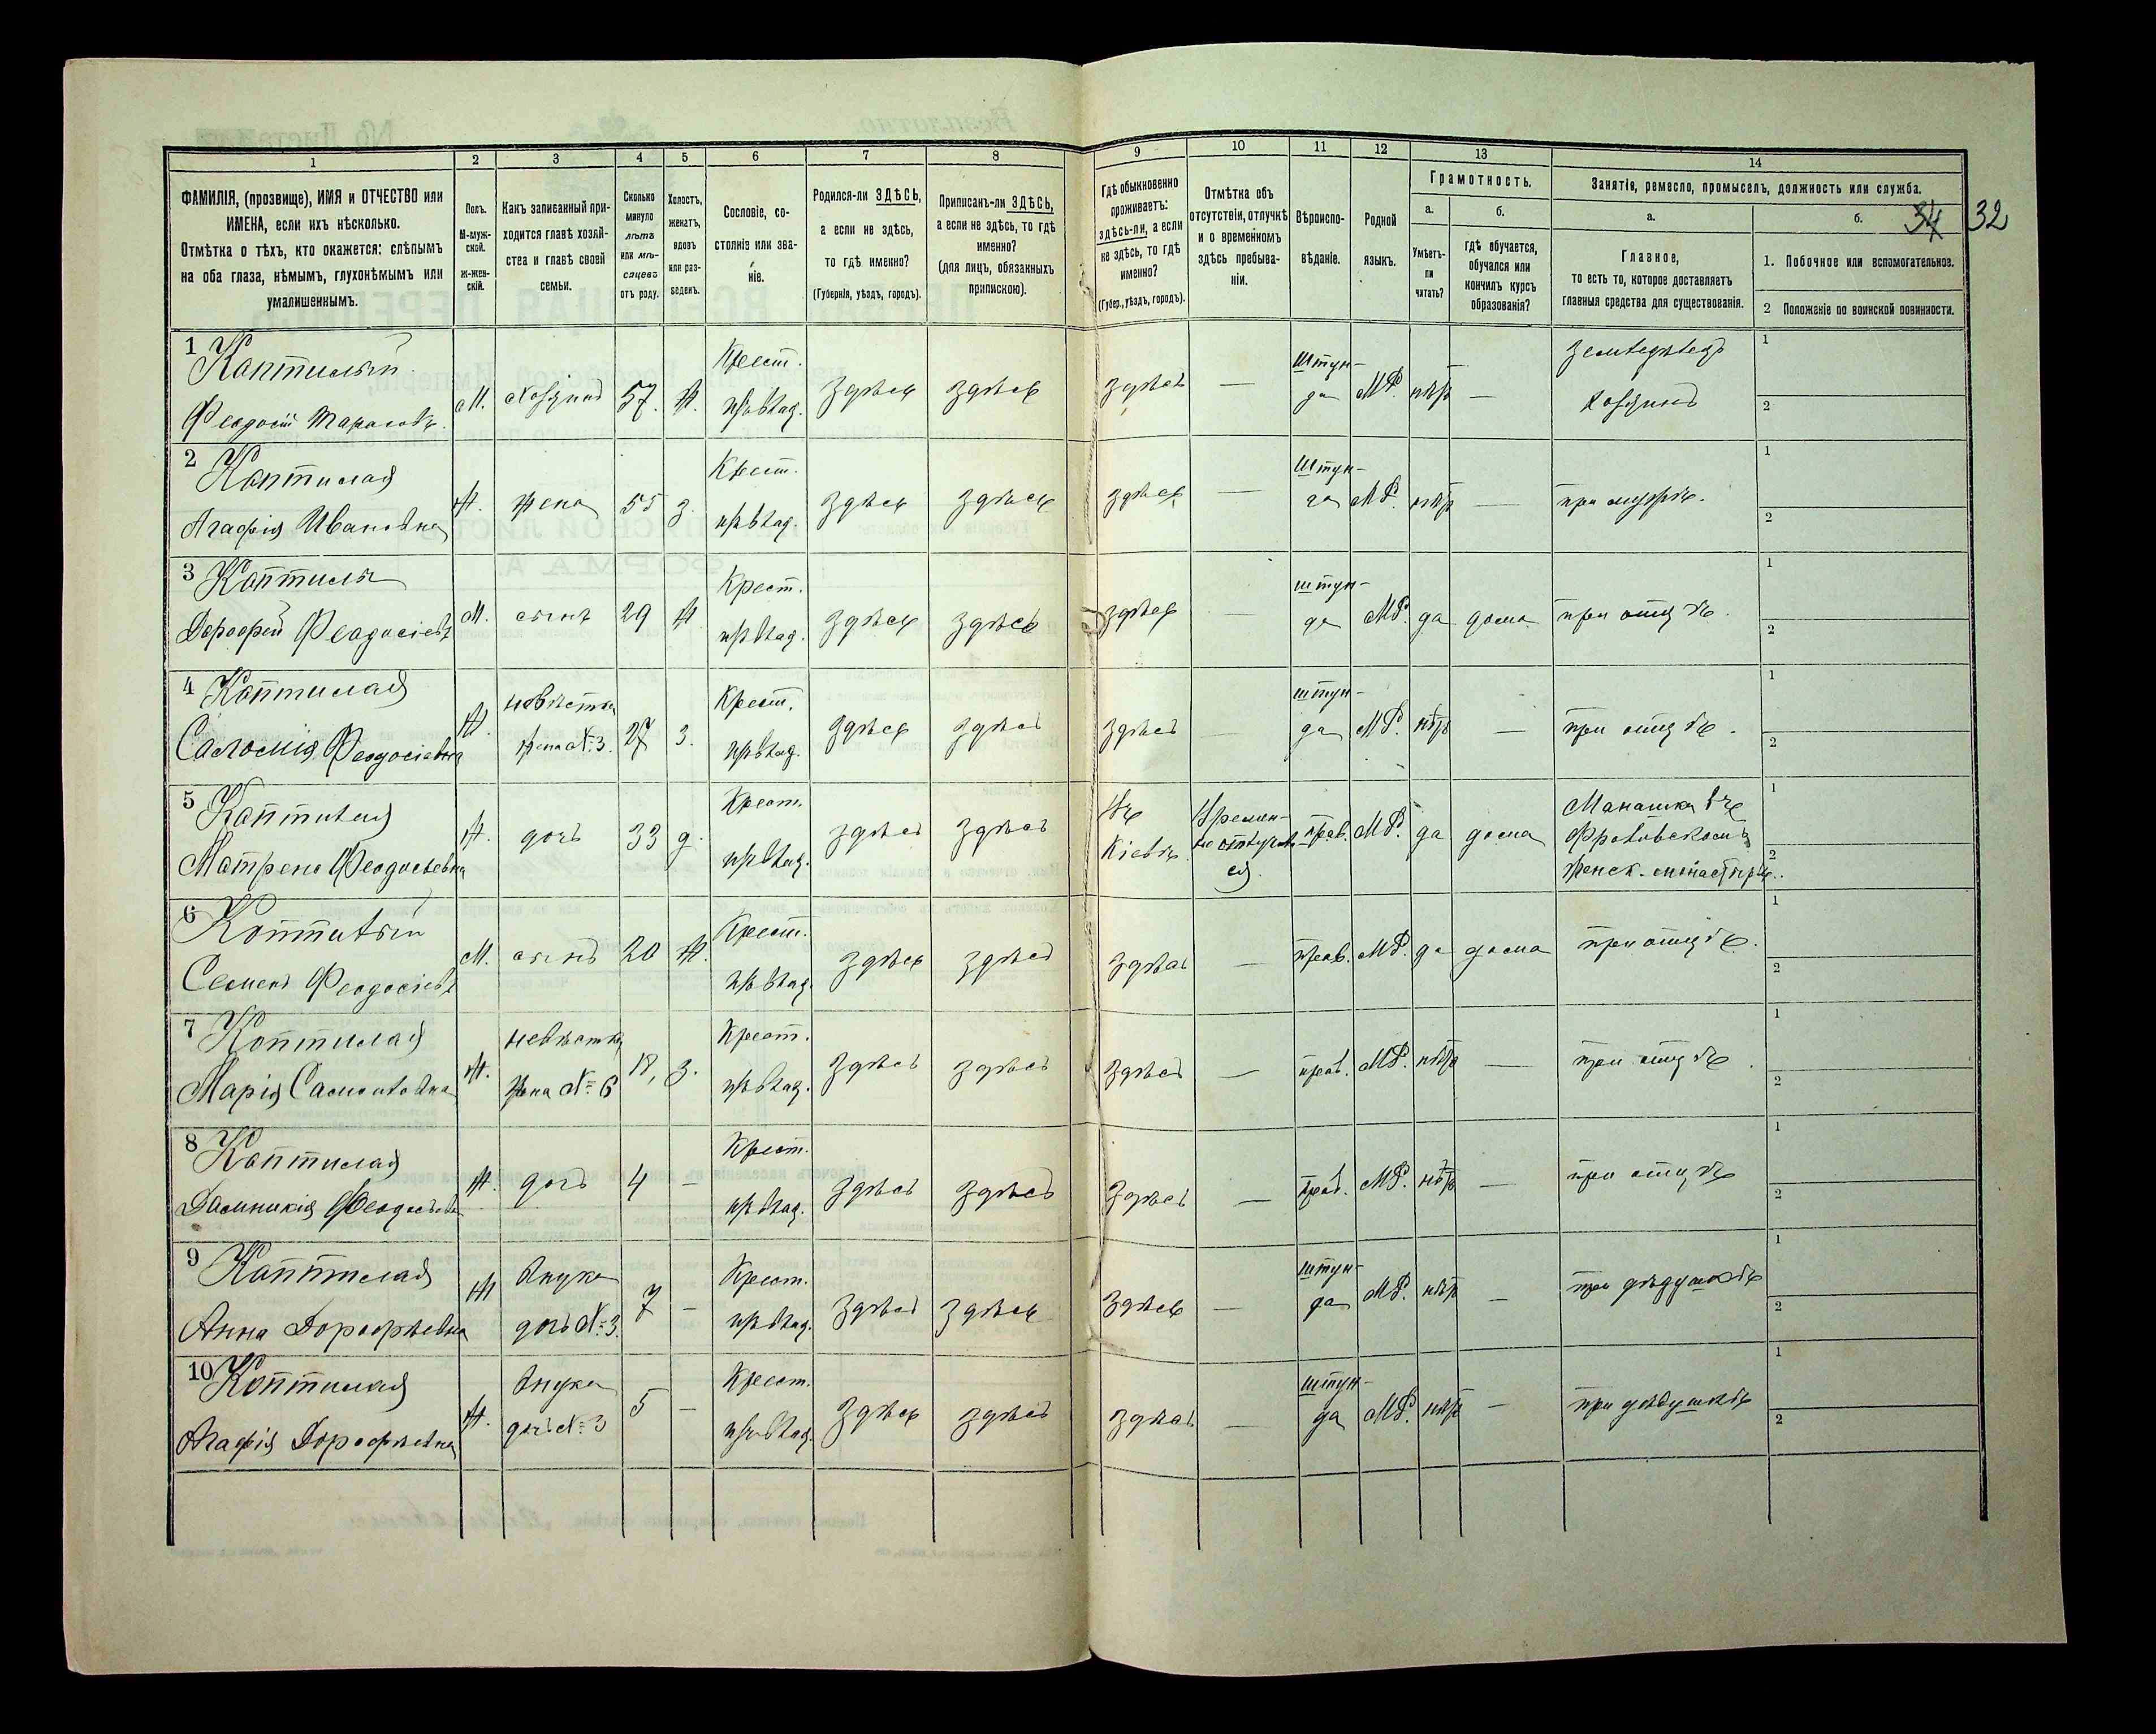 34 32
1 2 3 4 5 6 7 8 9 10 11 12 13 14
ФАМИЛІЯ, (прозвище), ИМЯ и ОТЧЕСТВО или ИМЕНА, если ихъ нѣсколько.
Отмѣтка о тѣхъ, кто окажется: слѣпымъ на оба глаза, нѣмымъ, глухонѣмымъ или умалишеннымъ.
Полъ. М-мужской. Ж-женскій.
Какъ записанный приходится главѣ хозяйства и главѣ своей семьи.
Сколько минуло лѣтъ или мѣсяцевъ отъ роду.
Холостъ, женатъ, вдовъ или разведенъ.
Сословіе, состояніе или званіе.
Родился-ли ЗДѢСЬ, а если не здѣсь, то гдѣ именно?
(Губернія, уѣздъ, городъ).
Приписанъ-ли ЗДѢСЬ, а если не здѣсь, то гдѣ именно?
(для лицъ, обязанныхъ припискою).
Гдѣ обыкновенно проживаетъ: здѣсь-ли, а если не здѣсь, то гдѣ именно?
(Губер., уѣздъ, городъ).
Отмѣтка объ отсутствіи, отлучкѣ и о временномъ здѣсь пребываніи.
Вѣроисповѣданіе.
Родной языкъ.
Грамотность.
а. Умѣетъ-ли читать?
б. Гдѣ обучается, обучался или кончилъ курсъ образованія?
Занятіе, ремесло, промыселъ, должность или служба.
а. Главное, то есть то, которое доставляетъ главныя средства для существованія.
б.
1. Побочное или вспомогательное.
2 Положеніе по воинской повинности.
1 Коптилый Феодосій Тарасовъ. М. Хозяинъ 57. Ж. Крест. из влад. здѣсь здѣсь здѣсь — Штунда М.Р. нѣтъ — земледѣлецъ хозяинъ 1 2
2 Коптилая Агафія Ивановна Ж. жена 55 з. Крест. из влад. здѣсь здѣсь здѣсь — Штунда М.Р. нѣтъ — при мужѣ. 1 2
3 Коптилы Дорофей Феодосіевъ М. сынъ 29 Ж Крест. из влад. здѣсь здѣсь здѣсь — штунда М.Р. да дома при отцѣ. 1 2
4 Коптилая Саломія Феодосіевна Ж. невѣстка жена №3. 27 з. Крест. из влад. здѣсь здѣсь здѣсь — штунда М.Р. нѣтъ — при отцѣ. 1 2
5 Коптилая Матрена Феодосьевна Ж. дочь 33 д. Крест. из влад. здѣсь здѣсь Кіевѣ прав. М.Р. да дома Манашка въ Фроловскомъ женск. 1 2
6 Коптилый Семенъ Феодосіевъ М. сынъ 20 Ж. Крест. из влад. здѣсь здѣсь здѣсь — прав. М.Р. да дома при отцѣ. 1 2
7 Коптилая Марія Самойловна Ж. невѣстка жена №6 18, з. Крест. из влад. здѣсь здѣсь здѣсь — прав. М.Р. нѣтъ — при отцѣ. 1 2
8 Коптилая Домникія Ж. дочь 4 — Крест. из влад. здѣсь здѣсь здѣсь — прав. М.Р. нѣтъ — при отцѣ 1 2
9 Коптилая Анна Дорофѣевна Ж внука дочь №3. 7 — Крест. из влад. здѣсь здѣсь здѣсь — штунда М.Р. нѣтъ — при дѣдушкѣ 1 2
10 Коптилая Агафія Дорофѣевна Ж. внука дочь №3 5 — Крест. из влад. здѣсь здѣсь здѣсь — штунда М.Р. нѣтъ — при дѣдушкѣ 1 2